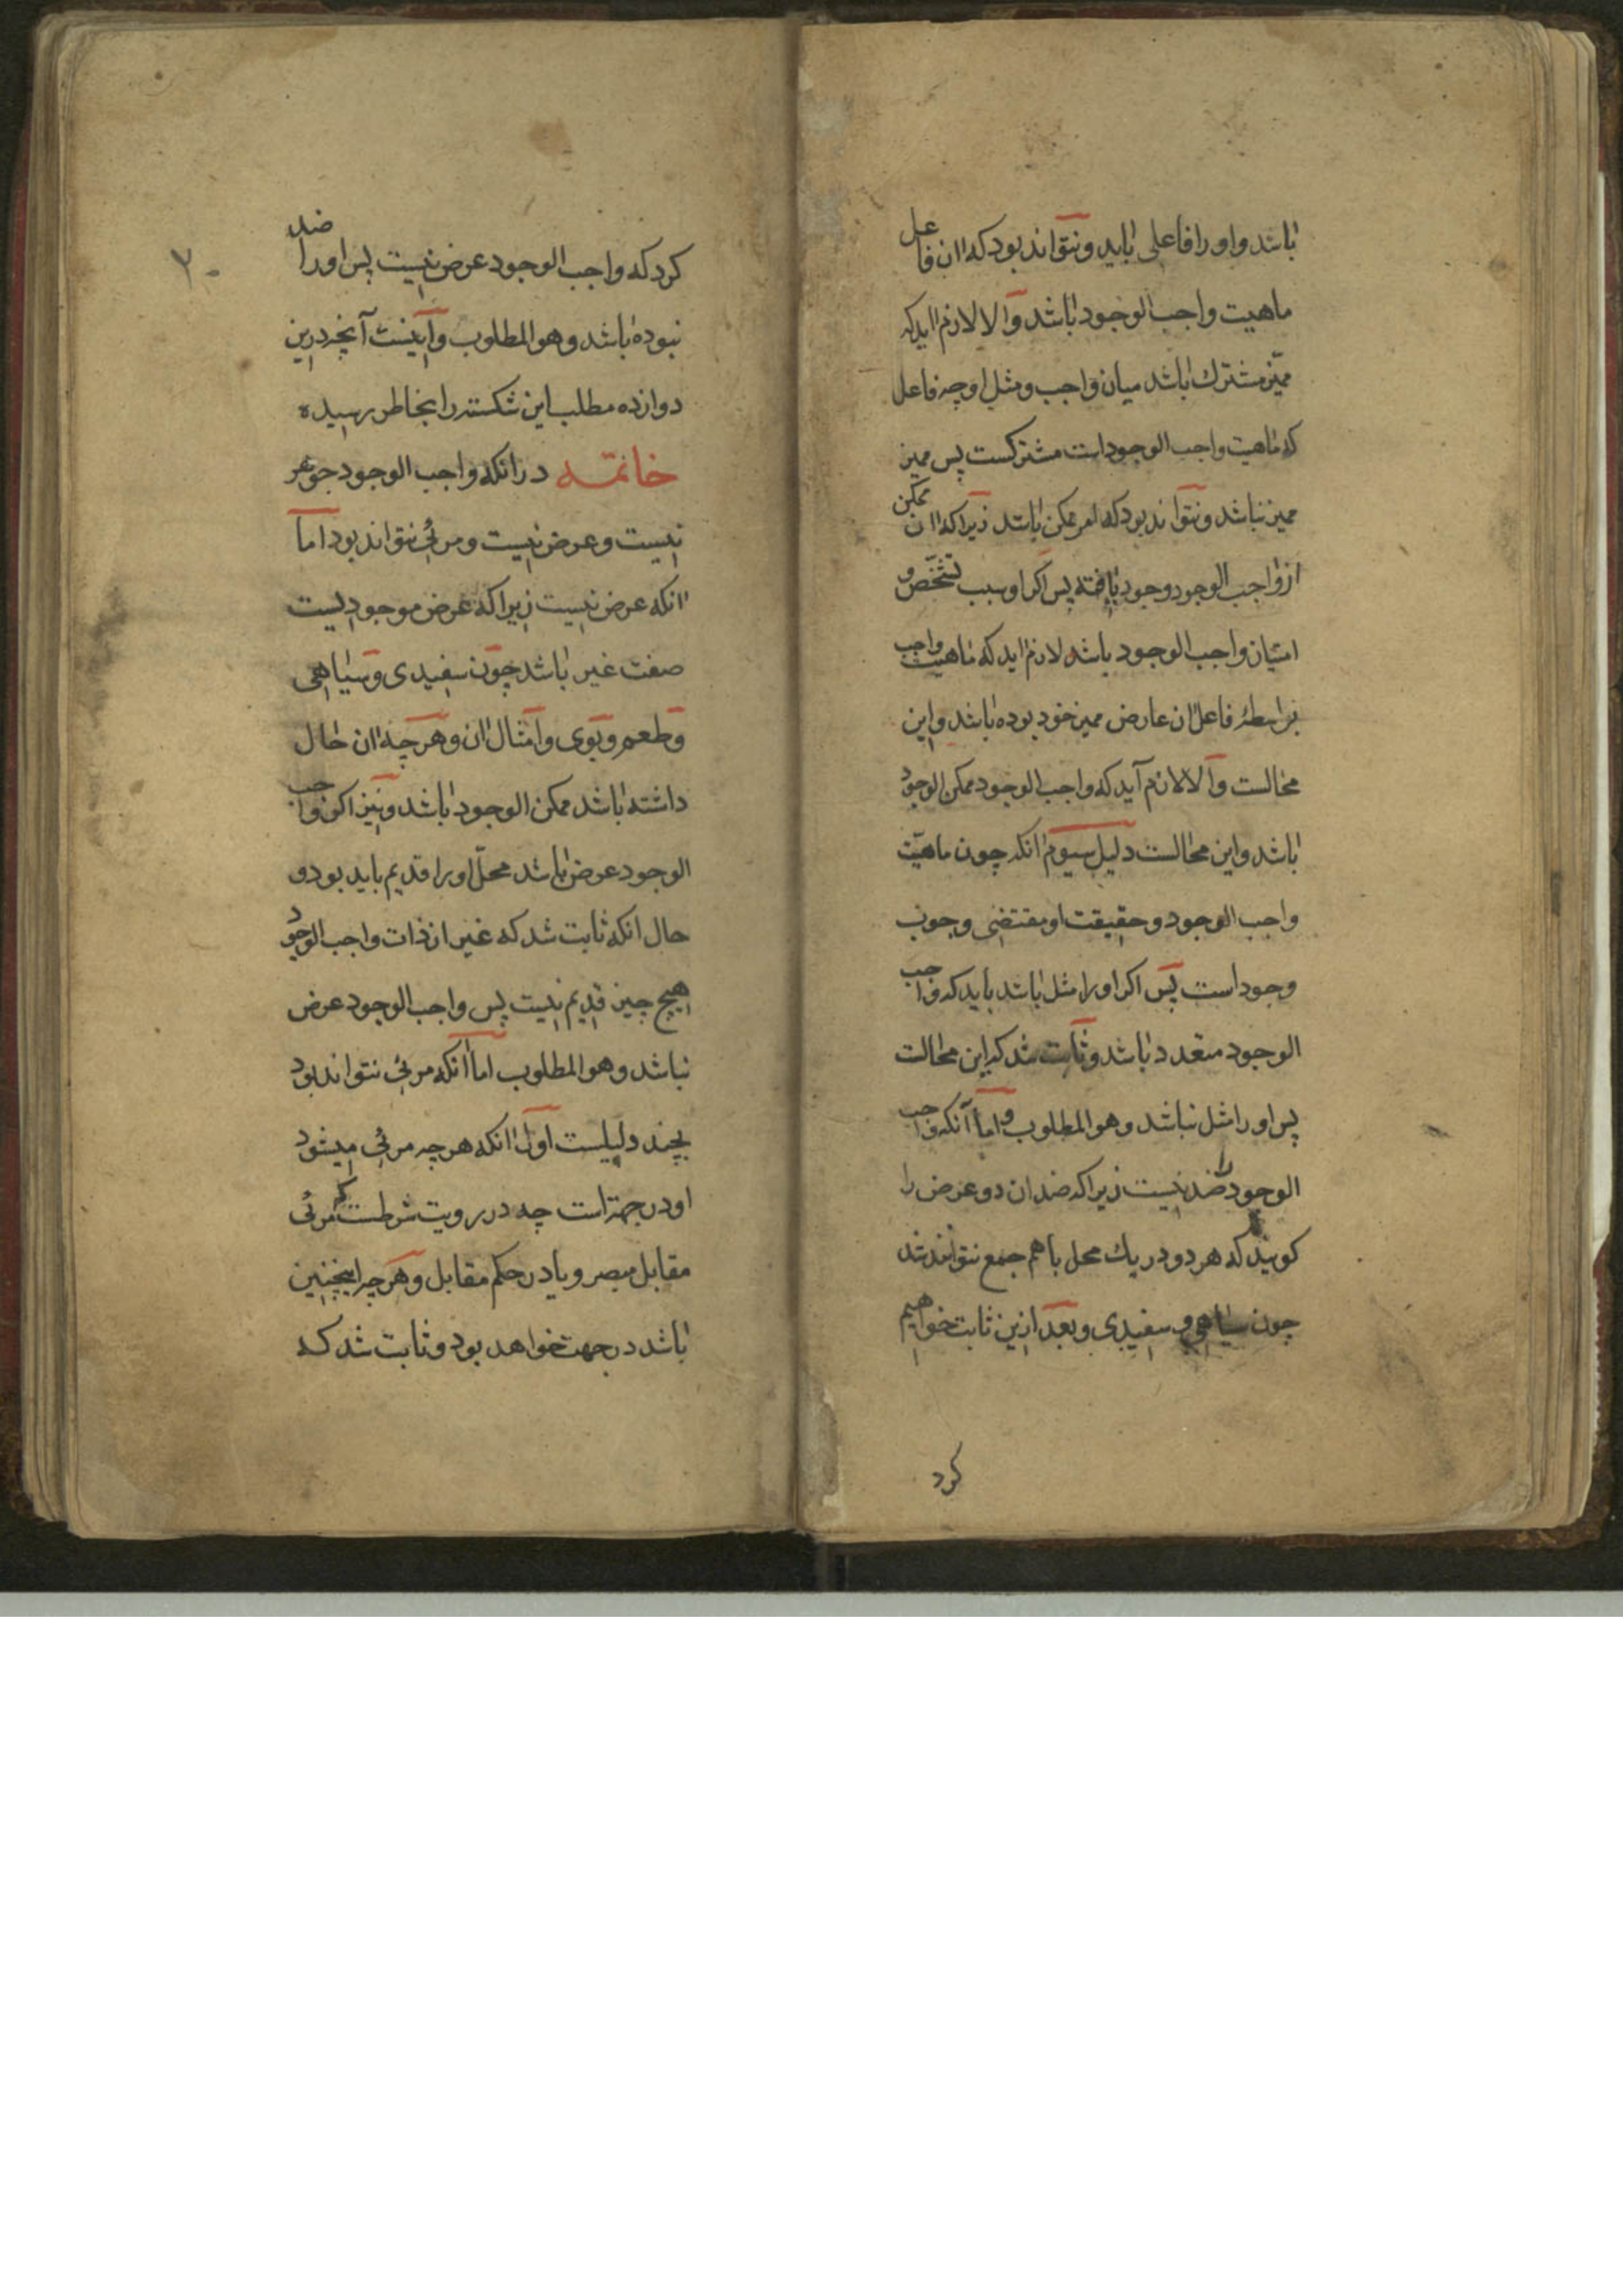 باشد و او را فاعلی باید و نتواند بود که ان فاعل
ماهیت واجب الوجود باشد والا لازم اید که
ممیّز مشترك باشد میان واجب و مثل او چه فاعل
که ماهیت واجب الوجود است مشترکست پس ممیز
ممیز نباشد و نتواند بود که امر ممکن باشد زیرا که ان ممکن
از واجب الوجود وجود یافته پس اگر او سبب تشخّص و
امتیاز واجب الوجود باشد لازم اید که ماهیت واجب
بواسطۀ فاعل ان عارض ممیز خود بوده باشد و این
محالست والا لازم آید که واجب الوجود ممکن الوجود
باشد و این محالست دلیل سیوم انکه چون ماهیّت
واجب الوجود و حقیقت او مقتضی وجوب
وجود است پس اکر او را مثل باشد باید که واجب
الوجود متعدد باشد و ثابت شد که این محالست
پس او را مثل نباشد و هو المطلوب و اما آنکه واجب
الوجود را ضد نیست زیرا که ضدان دو عرض را
کویند که هر دو در یك محل باهم جمع نتوانند شد
چون سیاهی و سفیدی و بعد ازین ثابت خواهیم
کرد
۲۰
کرد که واجب الوجود عرض نیست پس او را ضد
نبوده باشد و هو المطلوب و اینست آنچه درین
دوازده مطلب این شکسته را بخاطر رسیده
خاتمه در انکه واجب الوجود جوهر
نیست و عرض نیست و مرئی نتواند بود اما
انکه عرض نیست زیرا که عرض موجودیست
صفت غیر باشد چون سفیدی و سیاهی
و طعم و بوی و امثال ان و هر چه ان حال
داشته باشد ممکن الوجود باشد و نیز اکر واجب
الوجود عرض باشد محلّ او را قدیم باید بود و
حال انکه ثابت شد که غیر از ذات واجب الوجود
هیچ چیز قدیم نیست پس واجب الوجود عرض
نباشد و هو المطلوب اما انکه مرئی نتواند بود
بچند دلیلست اول انکه هر چه مرئی میشود
او در جهة است چه در رویت شرطست که مرئی
مقابل مبصر و یا در حکم مقابل و هر چه اینچنین
باشد در جهت خواهد بود و ثابت شد که